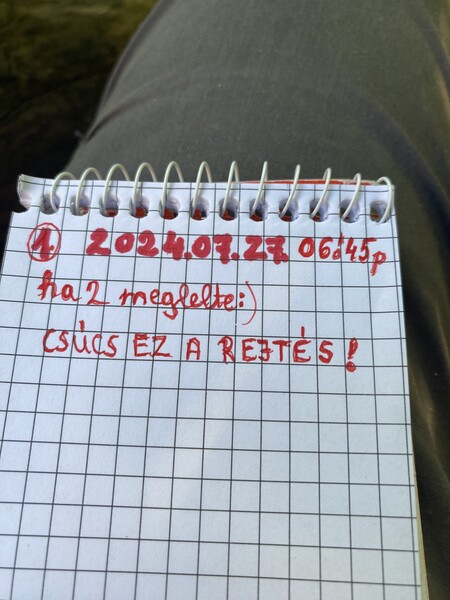 1. 2024.07.27. 06:45p
ha2 meglelte:)
CSÚCS EZ A REJTÉS!